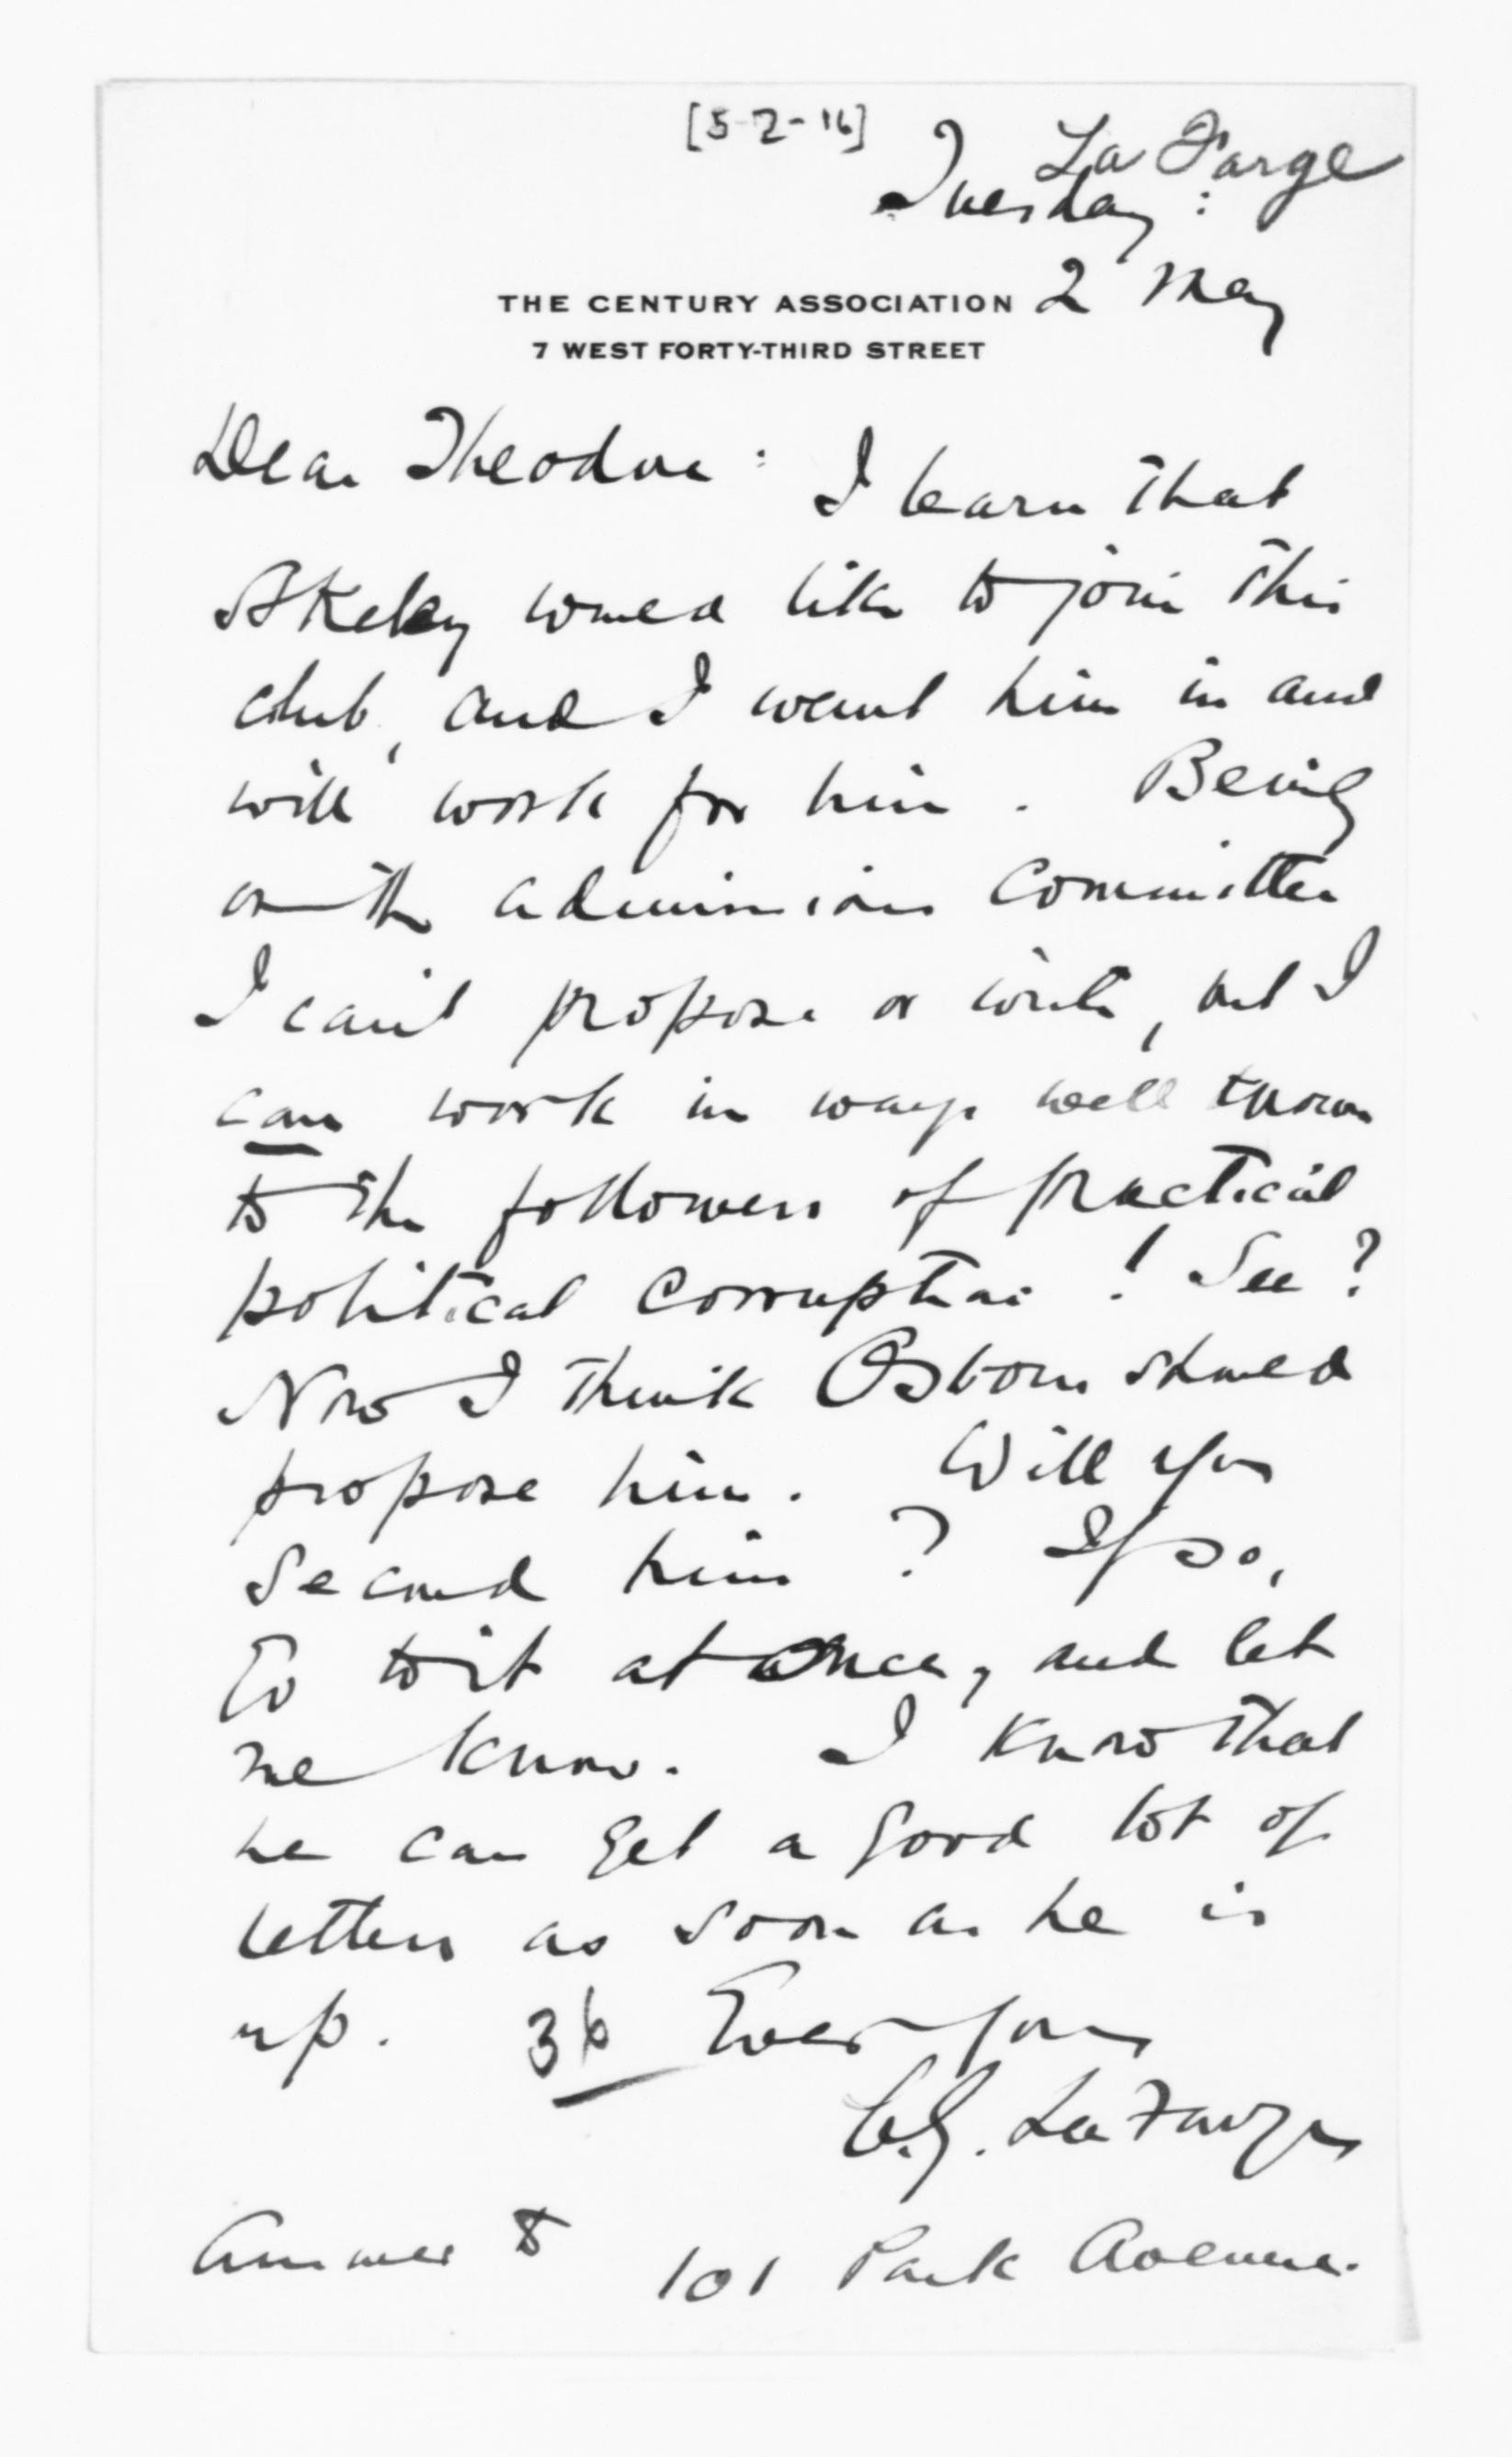 [5-2-16]
La Farge
Tuesday:
2 May
THE CENTURY ASSOCIATION
7 WEST FORTY-THIRD STREET
Dear Theodore: I learn that
Akeley would like to join this
club, and I want him in and
will work for him. Being
on the admissions committee
I can't propose or write, but I
can work in ways well known
to the followers of practical
political corruption! See?
Now I think Osborn should
propose him. Will you
second him? If so,
do it at once, and let
me know. I know that
he can get a good lot of
letters as soon as he is
up. 36 Ever yours
C.G. La Farge
Answer to 101 Park Avenue.